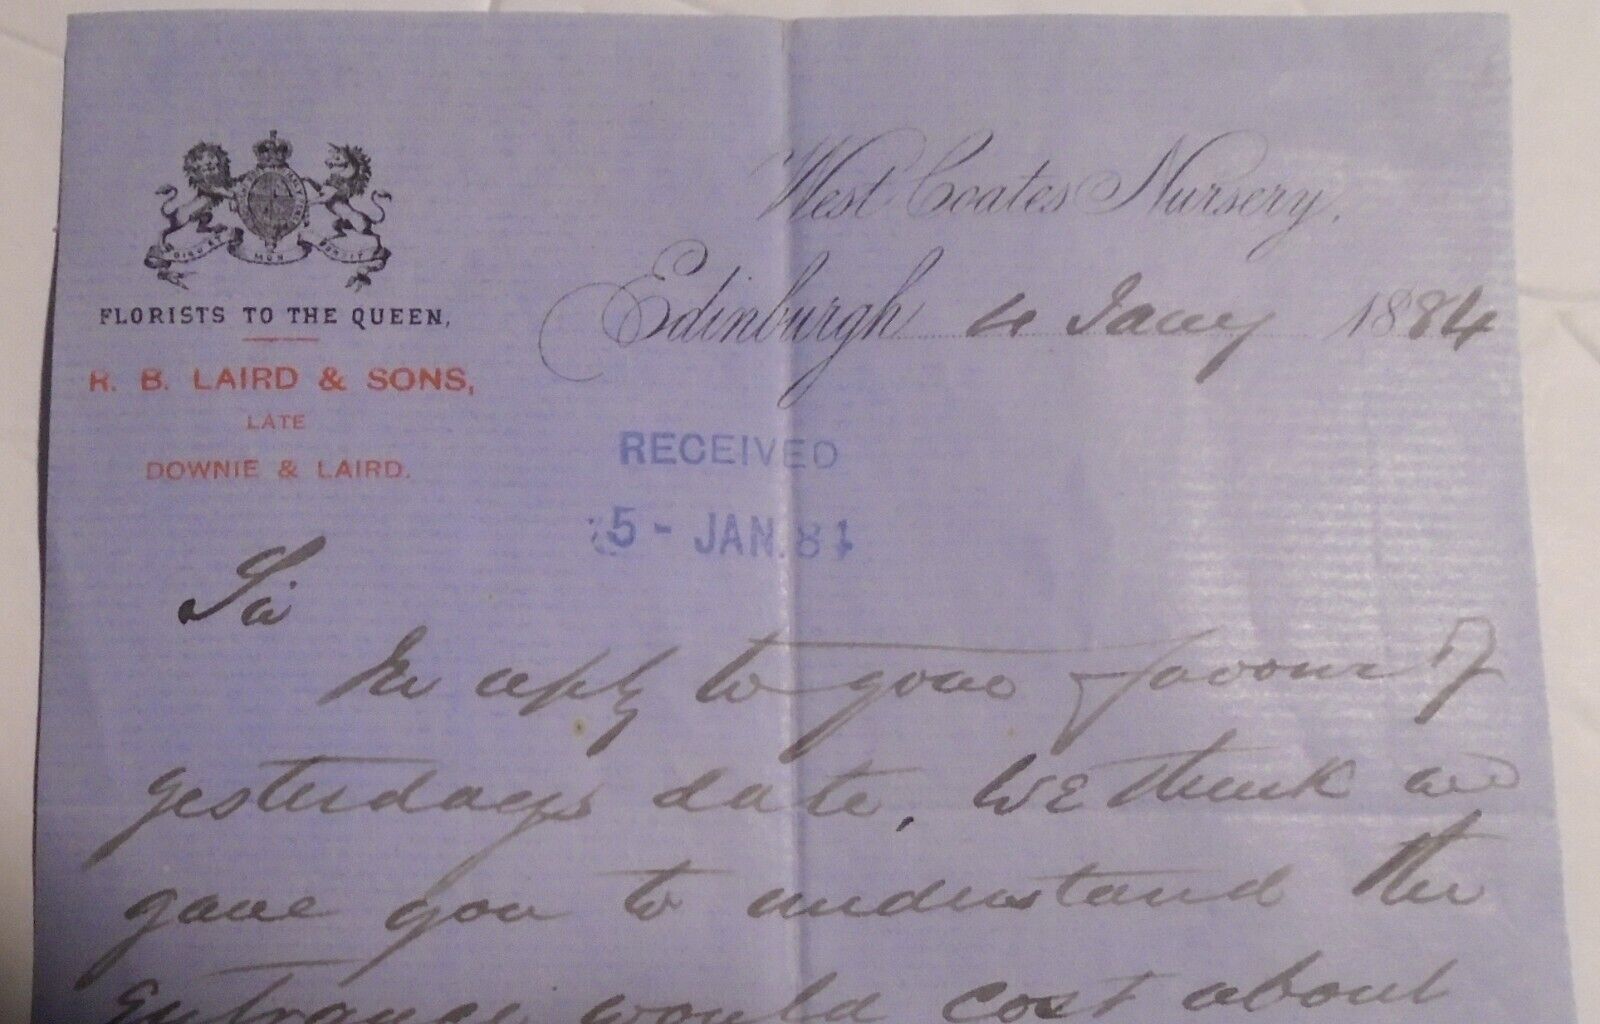 DIEU ET MON DROIT
FLORISTS TO THE QUEEN,
R. B. LAIRD & SONS,
LATE
DOWNIE & LAIRD.
West Coates Nursery,
Edinburgh 4 Jany 1884
RECEIVED
5 - JAN. 84
Sir
In reply to your favour of
yesterdays date, We think we
gave you to understand the
Entrance would cost about